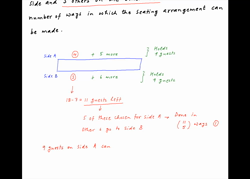 side and 3 others on the
number of ways in which the seating arrangement can
be made.
Side A 4 + 5 more } Holds 9 guests
Side B 3 + 6 more } Holds 9 guests
18-7 = 11 guests left
5 of these chosen for side A → Done in
other 6 go to side B (11 5) ways. ①
9 guests on side A can